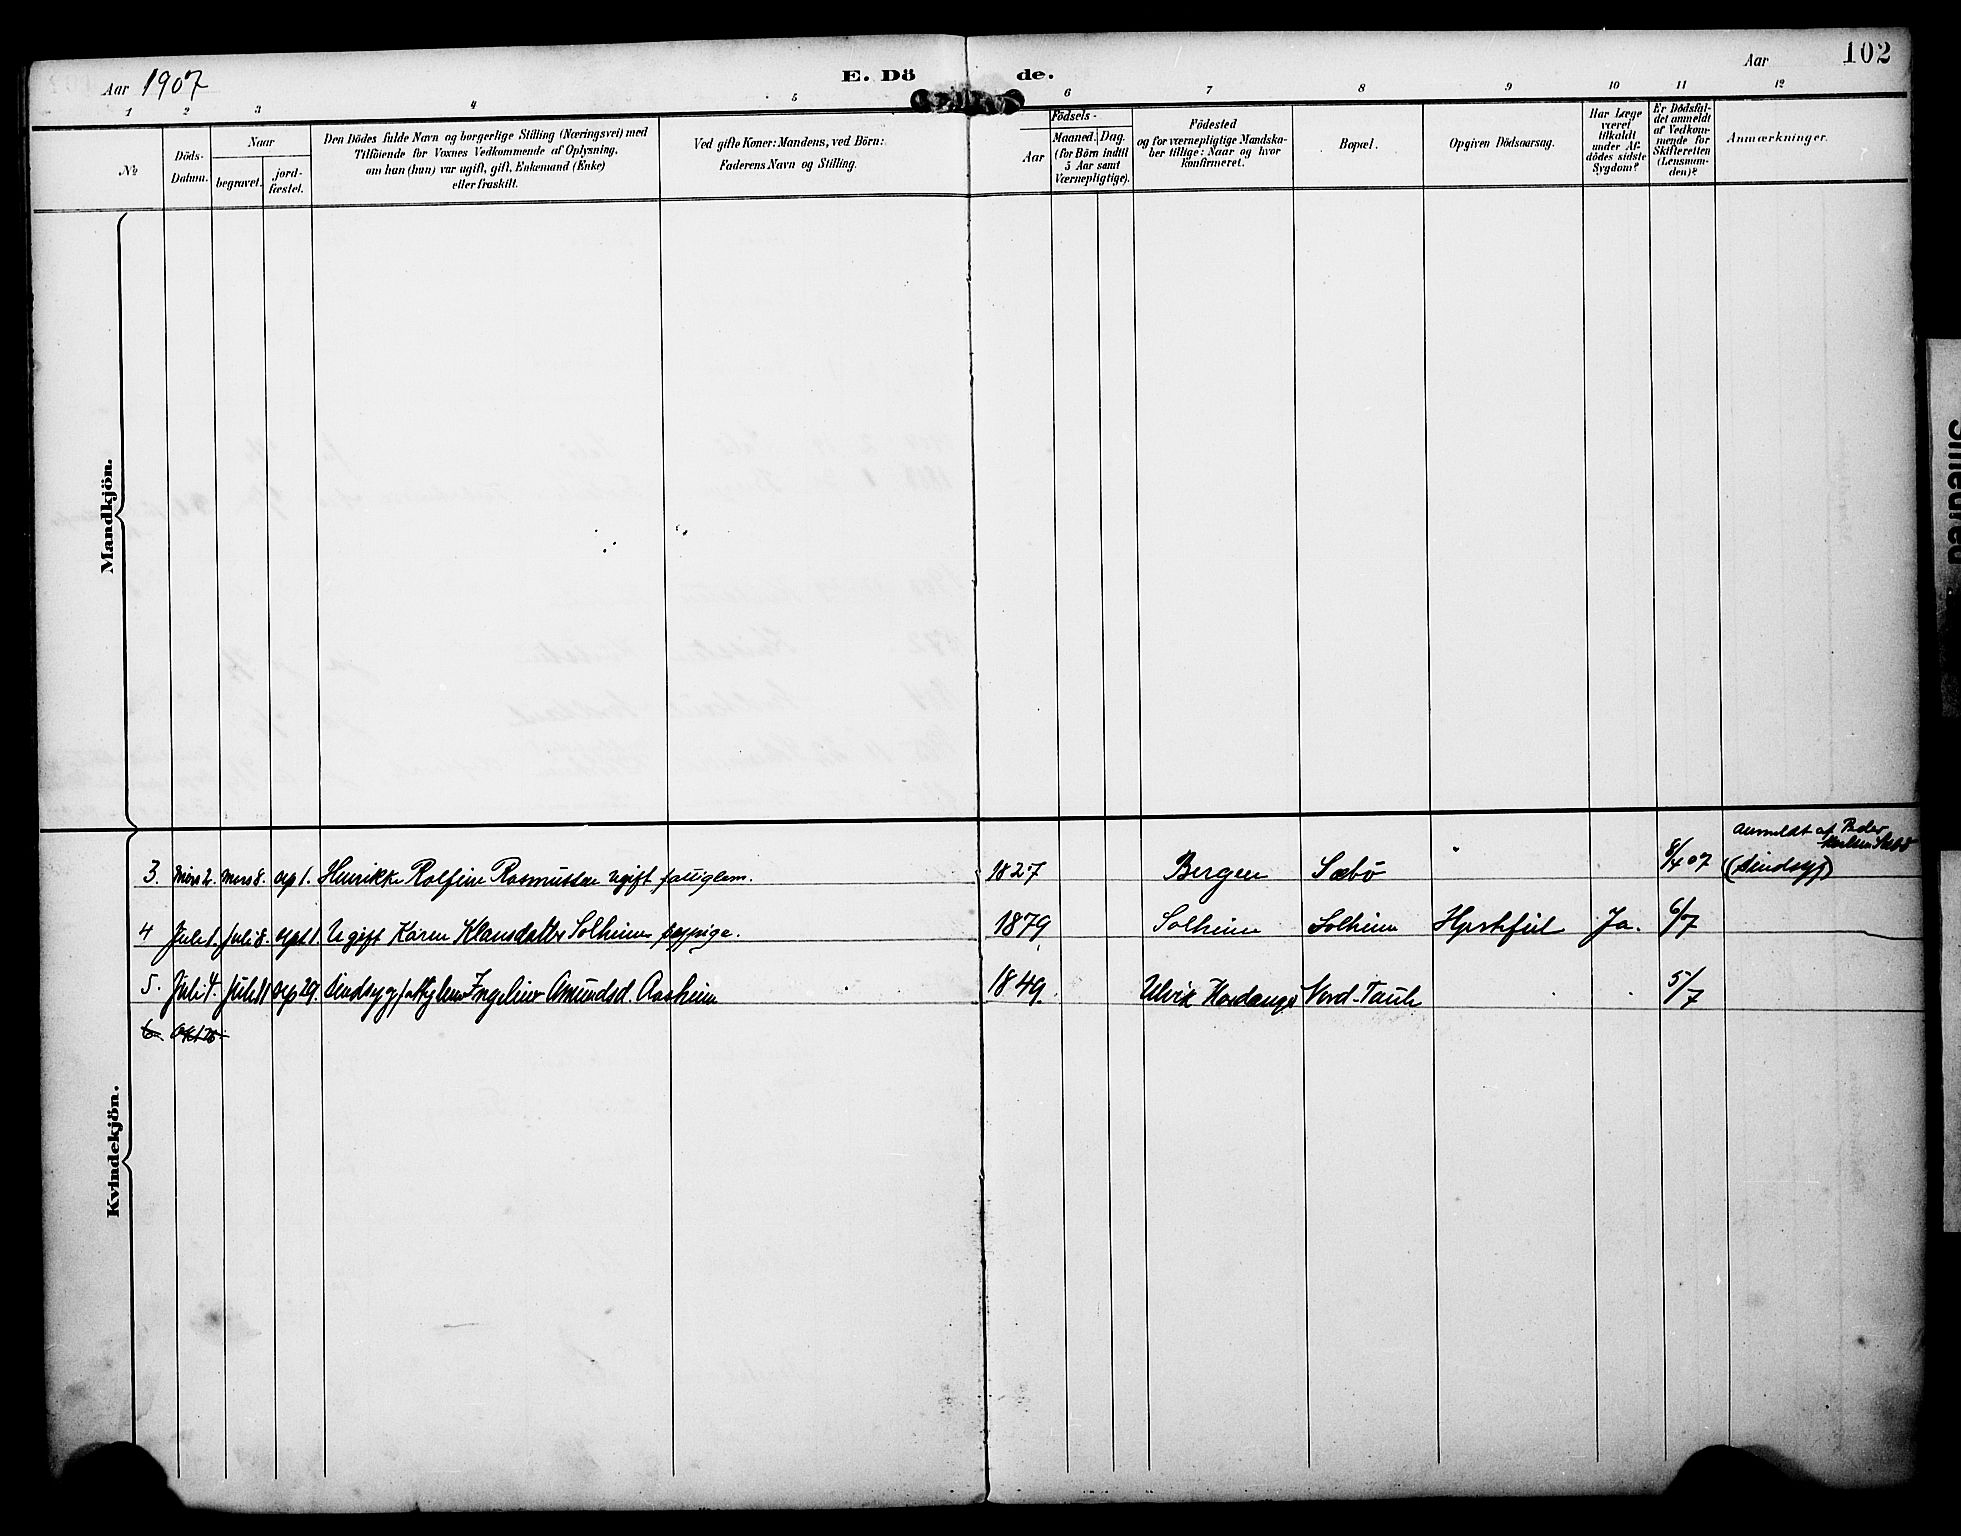 Aar 1907
E. Dö de.
Aar
102
1 2 3 4 5 6 7 8 9 10 11 12
№
Döds-
Datum.
Naar
begravet.
jord-
fæstet.
Den Dödes fulde Navn og borgerlige Stilling (Næringsvei) med
Tilföiende for Voxnes Vedkommende af Oplysning,
om han (hun) var ugift, gift, Enkemand (Enke)
eller fraskilt.
Ved gifte Koner: Mandens, ved Börn:
Faderens Navn og Stilling.
Födsels-
Aar
Maaned. Dag.
(for Börn indtil
5 Aar samt
Værnepligtige).
Födested
og for værnepligtige Mandska-
ber tillige: Naar og hvor
konfirmeret.
Bopæl.
Opgiven Dödsaarsag.
Har Læge
været
tilkaldt
under Af-
dödes sidste
Sygdom?
Er Dödsfal-
det anmeldt
af Vedkom-
mende for
Skifteretten
(Lensman-
den)?
Anmærkninger.
Mandkjön.
Kvindekjön.
anmeldt af Peder
3. Mars 2. Mars 8. sep 1. Henrikke Rolfine Rasmussen ugift fattiglem. 1827 Bergen Sæbö 8/4 07 (Sindssyg)
4 Juli 1. Juli 8. sept 1. Ugift Karen Klausdatter Solheim 1879 Solheim Solheim Hjertfeil Ja. 6/7
5. Juli 4. Juli 11 sep 29. Sindssyg Ingeline Amundsd. Aasheim 1849. Ulvik Hardanger Nord-Taule 5/7
6 Okt